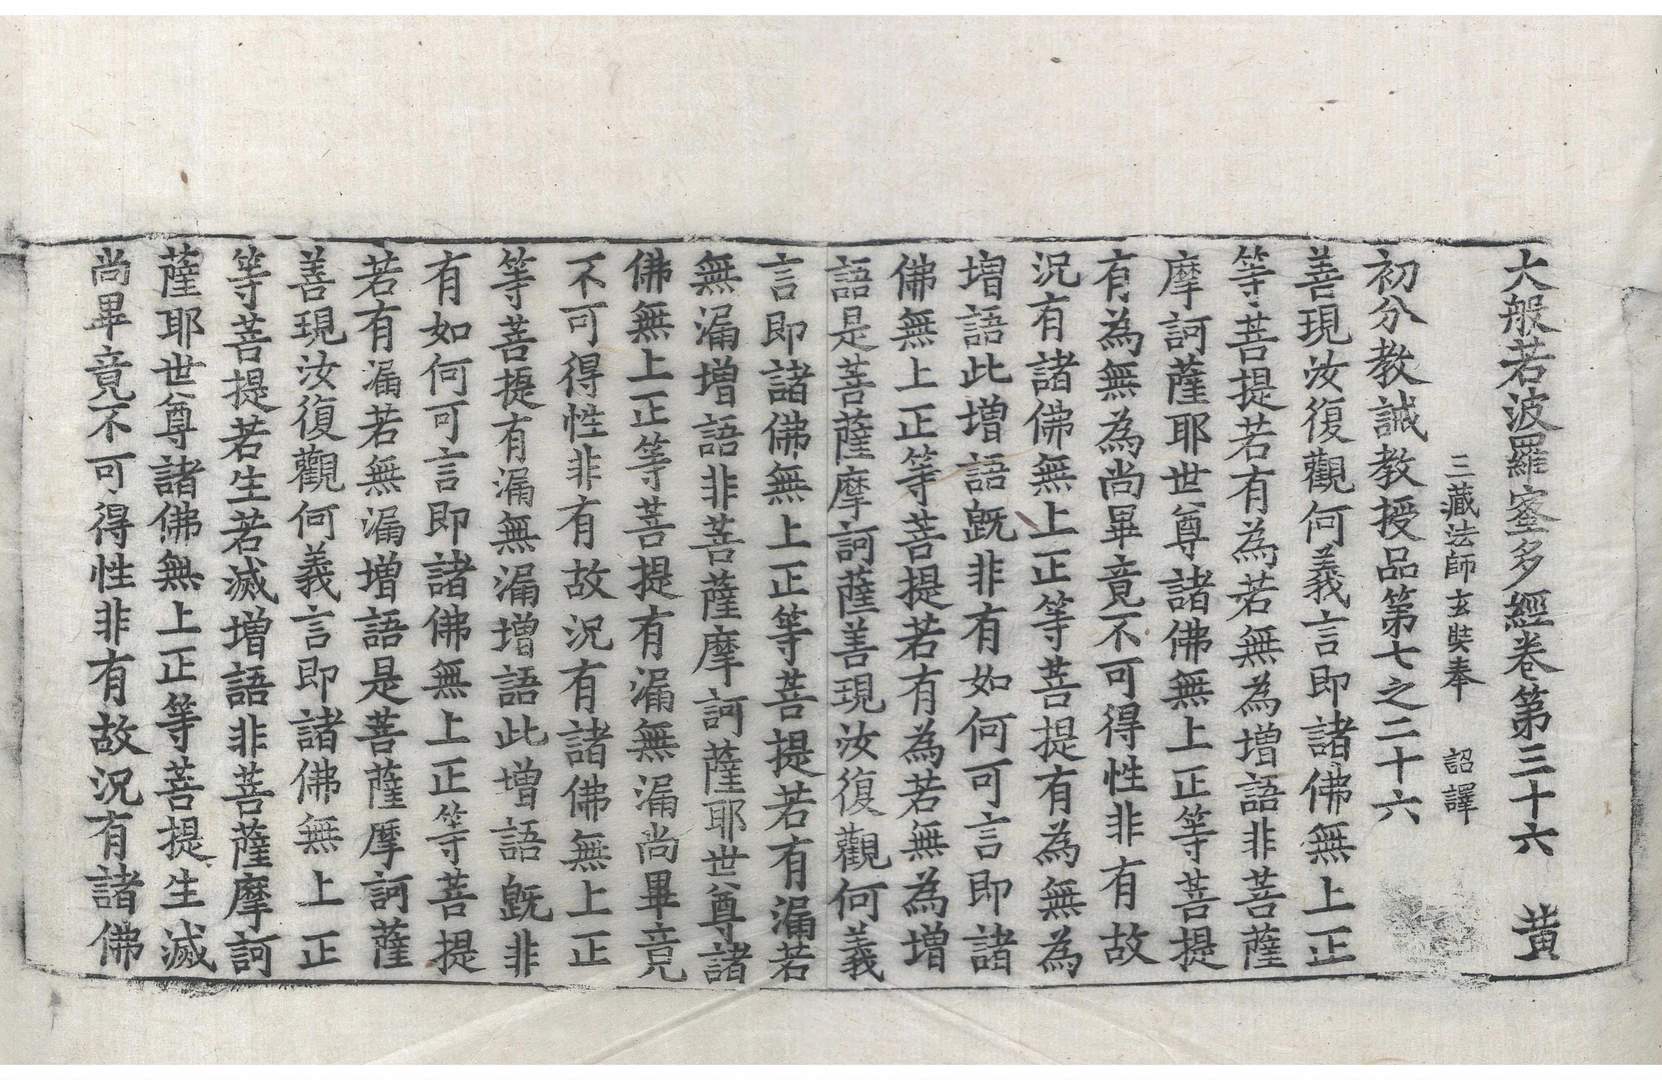 大般若波羅蜜多經卷第三十六　黄
三藏法師玄奘奉　詔譯
初分教誡教授品第七之二十六
善現汝復觀何義言即諸佛無上正
等菩提若有為若無為增語非菩薩
摩訶薩耶世尊諸佛無上正等菩提
有為無為尚畢竟不可得性非有故
況有諸佛無上正等菩提有為無為
增語此增語既非有如何可言即諸
佛無上正等菩提若有為若無為增
語是菩薩摩訶薩善現汝復觀何義
言即諸佛無上正等菩提若有漏若
無漏增語非菩薩摩訶薩耶世尊諸
佛無上正等菩提有漏無漏尚畢竟
不可得性非有故況有諸佛無上正
等菩提有漏無漏增語此增語既非
有如何可言即諸佛無上正等菩提
若有漏若無漏增語是菩薩摩訶薩
善現汝復觀何義言即諸佛無上正
等菩提若生若滅增語非菩薩摩訶
薩耶世尊諸佛無上正等菩提生滅
尚畢竟不可得性非有故況有諸佛